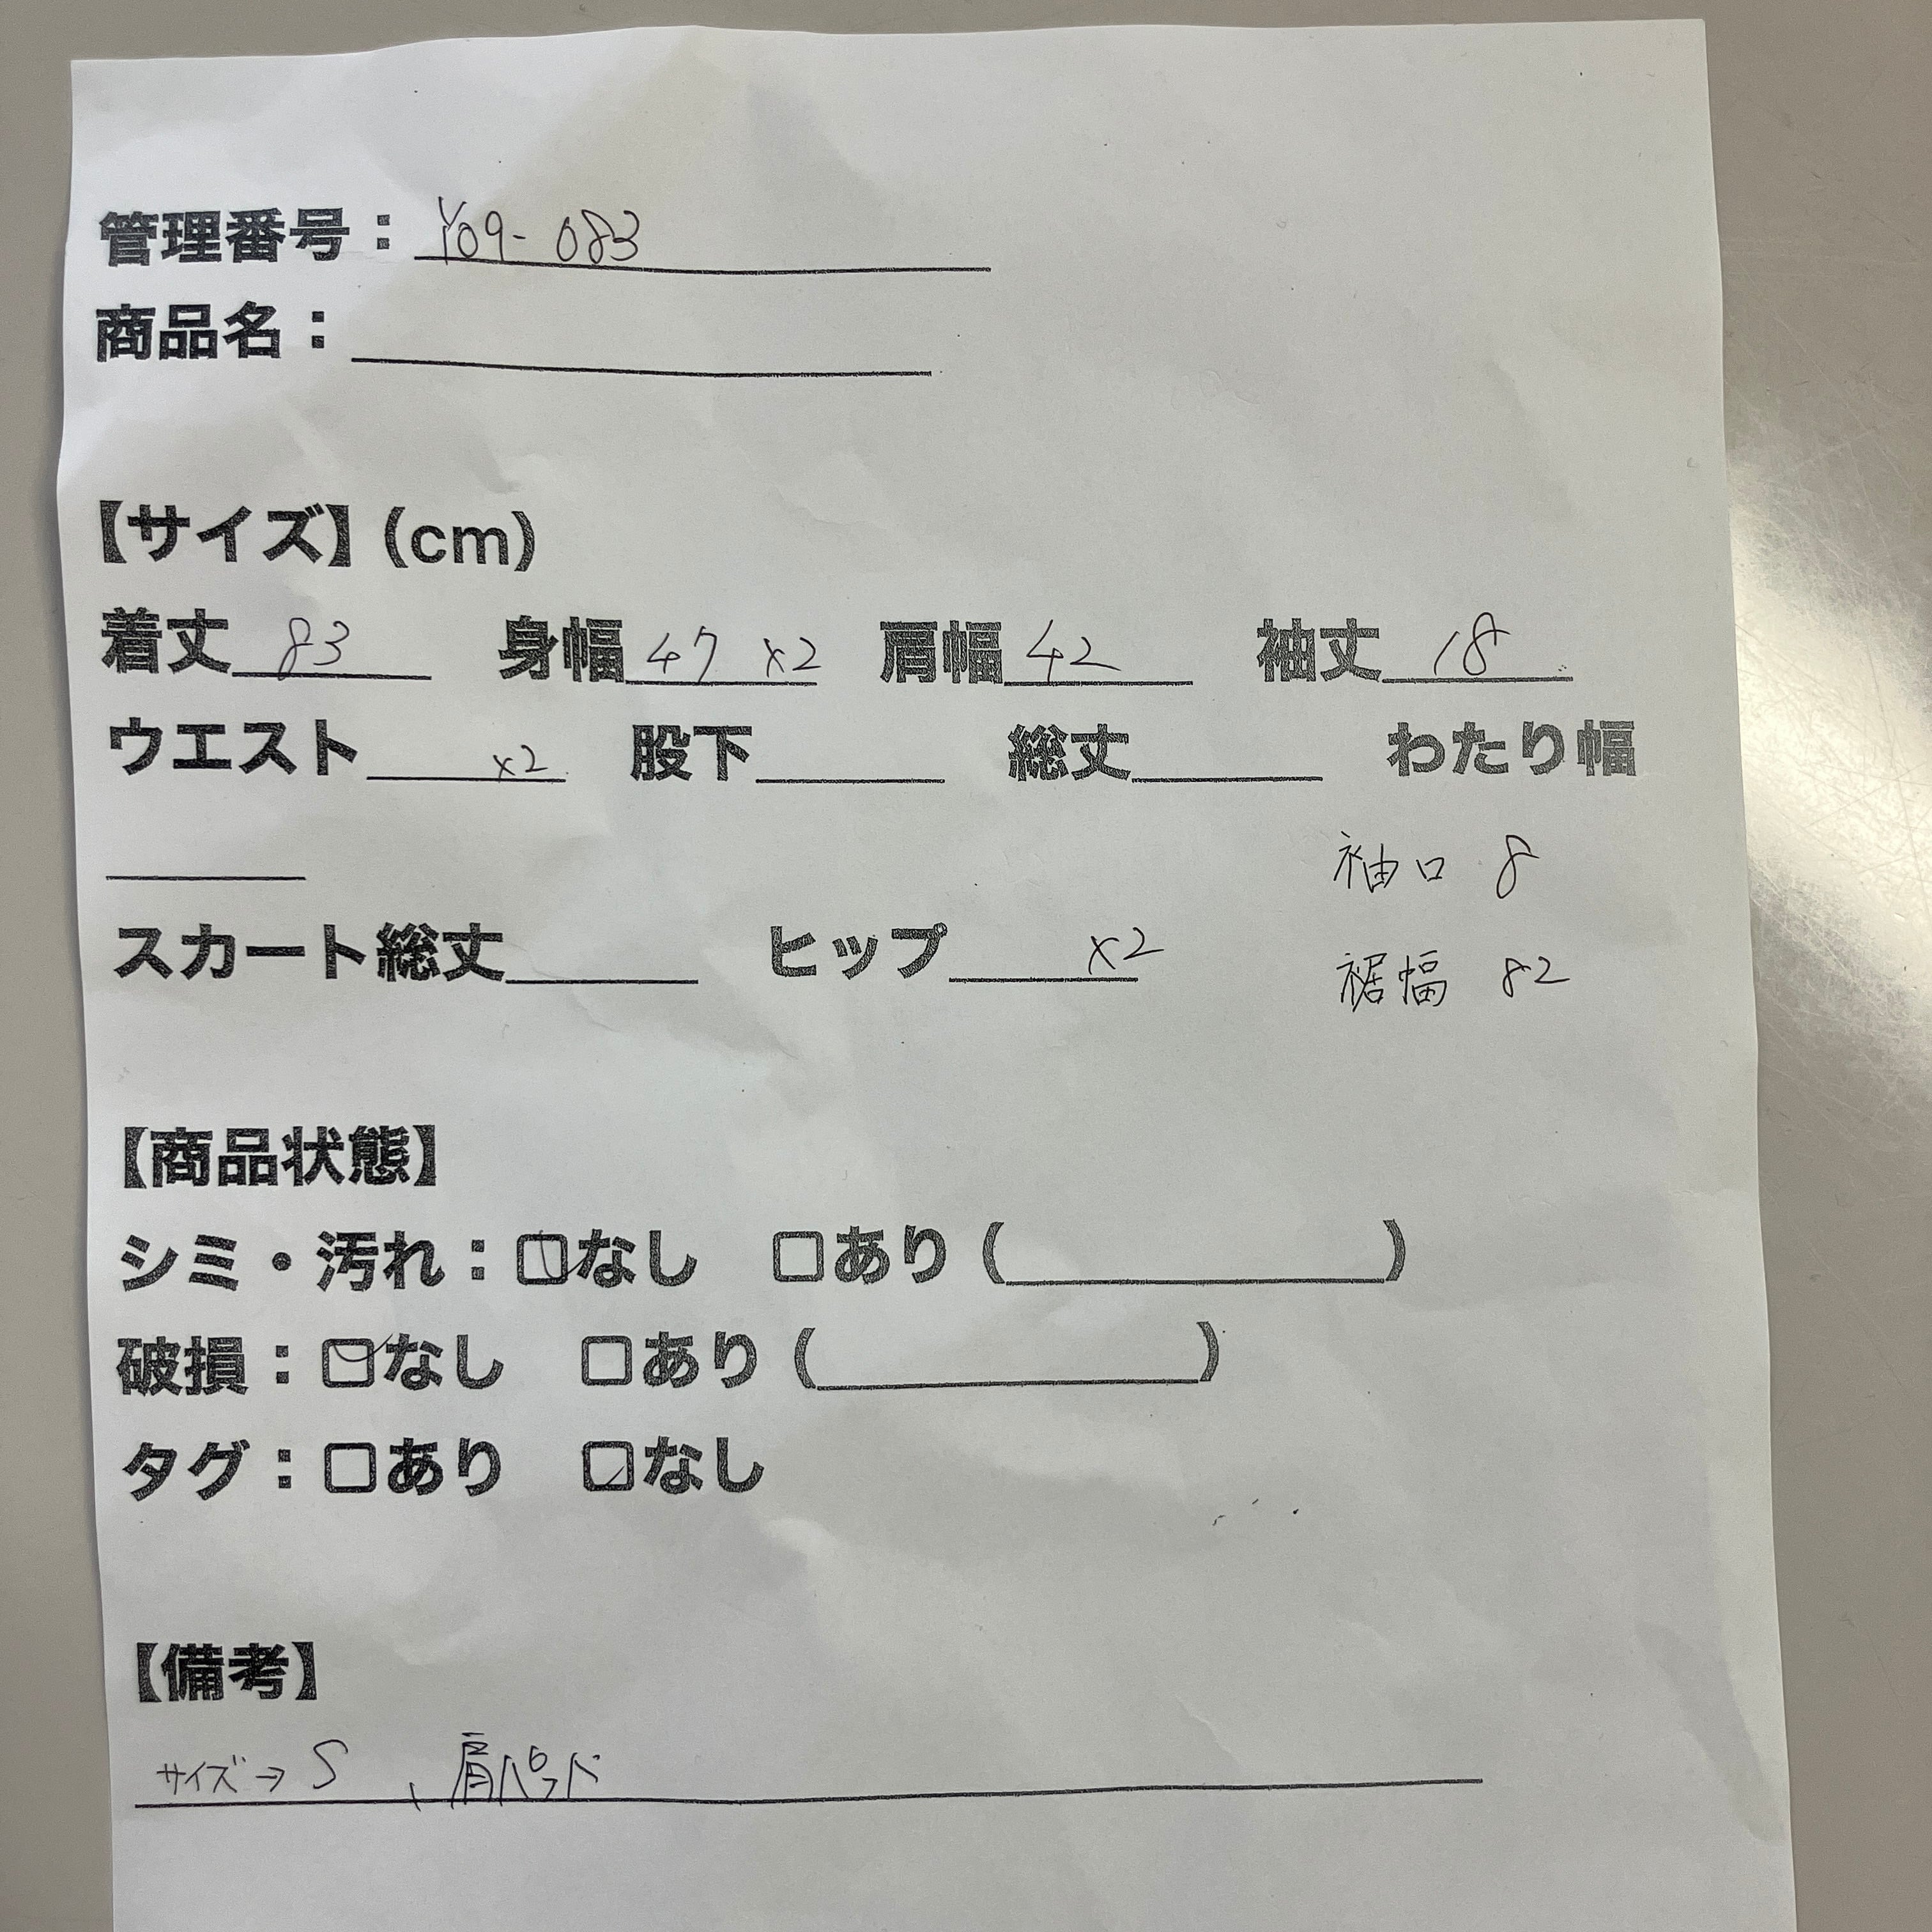 管理番号：Y09-083
商品名：
【サイズ】(cm)
着丈 83 身幅 47 x2 肩幅 42 袖丈 18
ウエスト x2 股下 総丈 わたり幅
袖口 8
スカート総丈 ヒップ x2
裾幅 82
【商品状態】
シミ・汚れ：☑なし □あり( )
破損：☑なし □あり( )
タグ：□あり ☑なし
【備考】
サイズ→S 、肩パット